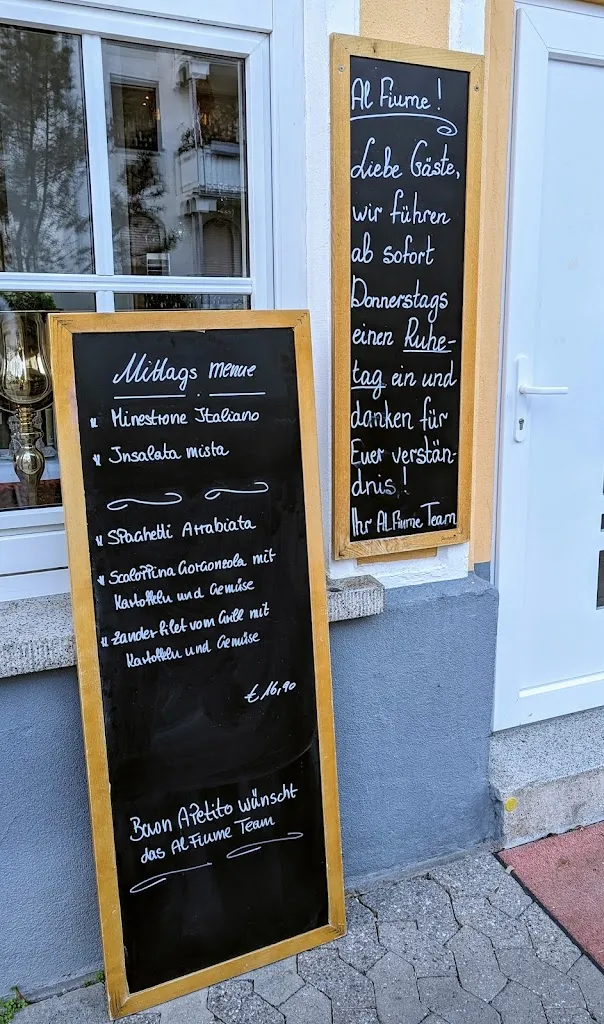 Al Fiume!
Liebe Gäste,
wir führen
ab sofort
Donnerstags
einen Ruhe-
tag ein und
danken für
Euer verstän-
dnis!
Ihr Al Fiume Team
Mittags menue
Minestrone Italiano
Insalata mista
Spaghetti Arrabiata
Scaloppina Gorgoneola mit
Kartoffeln und Gemüse
Zanderfilet vom Grill mit
Kartoffeln und Gemüse
€ 16,90
Buon Apetito wünscht
das Al Fiume Team